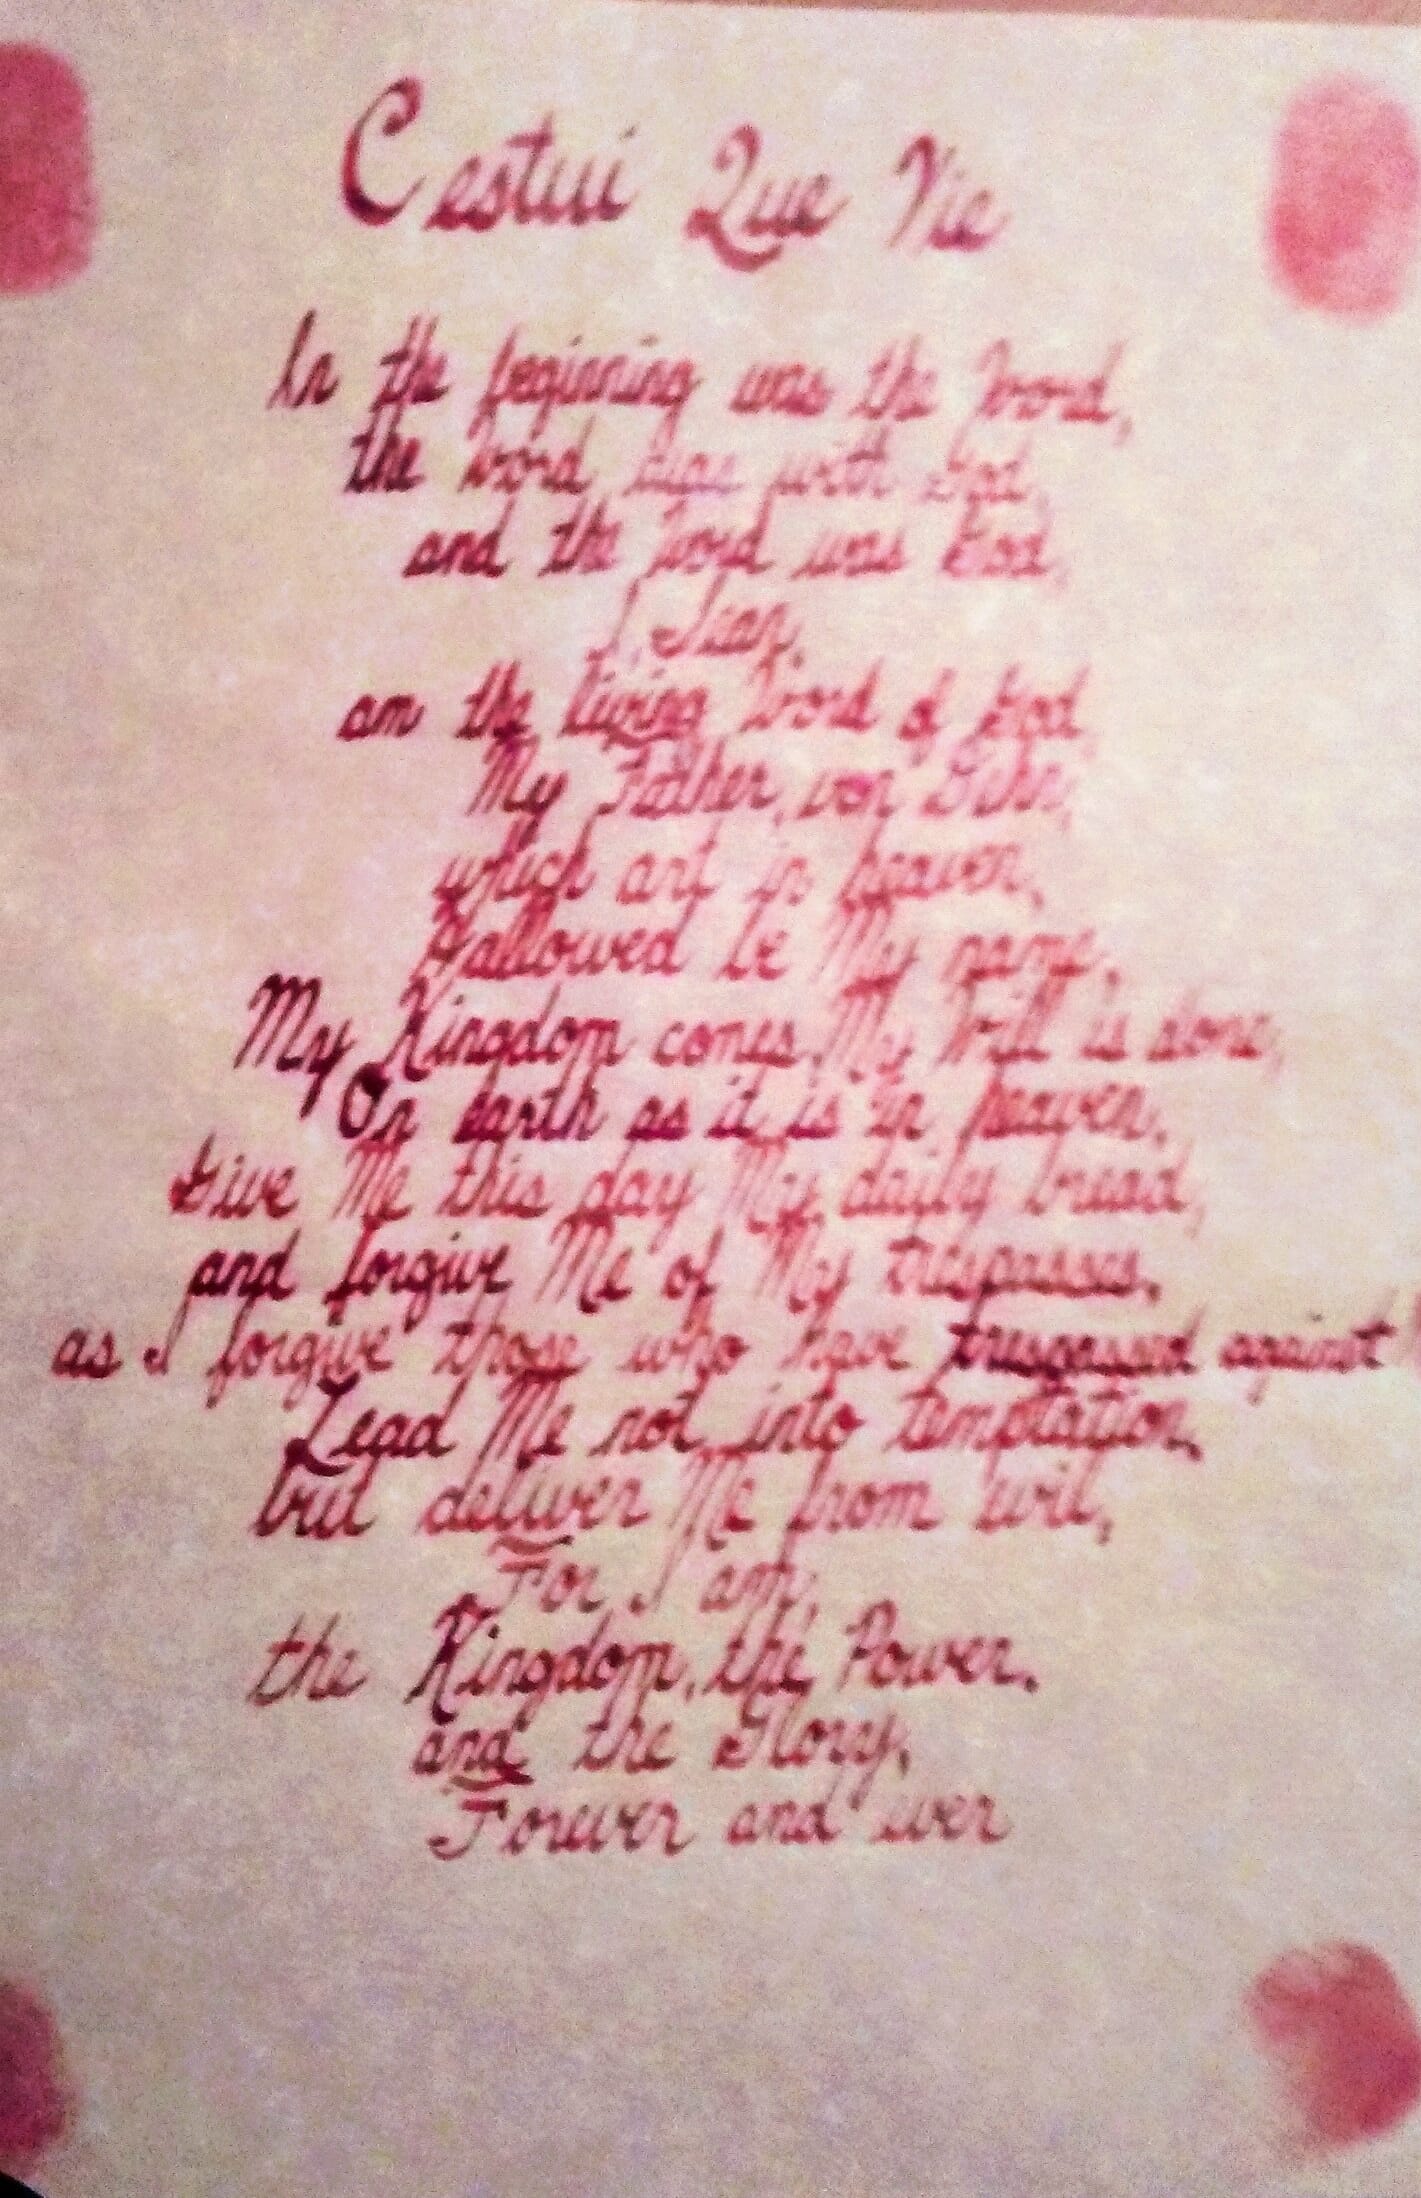 Cestui Que Vie
In the beginning was the Word,
the Word was with God,
and the Word was God,
I, Sean,
am the living Word of God,
My Father, von
which art in heaven,
Hallowed be My name.
My Kingdom comes, My Will is done,
On earth as it is in heaven.
Give Me this day My daily bread,
and forgive Me of My trespasses,
as I forgive those who have trespassed against
Lead Me not into temptation,
but deliver Me from evil,
For I am,
the Kingdom, the Power,
and the Glory,
Forever and ever